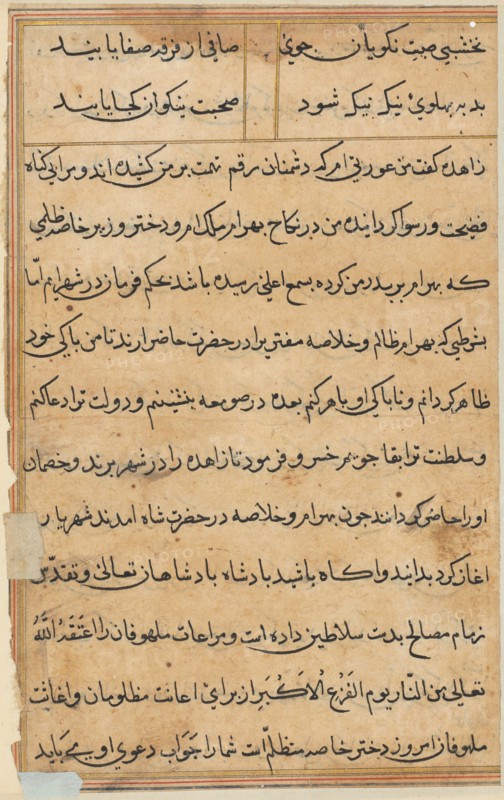 نخشبی صحبت نکویان جوی صافی از فرقه صفا یابند
بد به پهلوی نیک نیک شود صحبت نیکوان کجا یابند
زاهده کفت من عورتی ام که دشمنان رقم تهمت بر من کشیده اند و مرا بی کناه
فضیحت و رسوا کردانیده من در نکاح بهرام ملک ام و دختر وزیر خاصه ظلمی
که بهرام بر پدر من کرده بسمع اعلی رسیده باشد بحکم فرمان در شهر ایم اما
بشرطی که بهرام ظالم و خلاصه مفتری را در حضرت حاضر ارند تا من پاکی خود
ظاهر کردانم و ناپاکی او باهر کنم بعده در صومعه بنشینم و دولت ترا دعا کنم
و سلطنت ترا بقا جویم خسرو فرمود تا زاهده را در شهر برند و خصمان
او را حاضر کردانند چون بهرام و خلاصه در حضرت شاه امدند شهریار
اغاز کرد بدانید و اکاه باشید پادشاه پادشاهان تعالی و تقدس
زمام مصالح بدست سلاطین داده است و مراعات ملهوفان را اعتقه الله
تعالی من النار یوم الفزع الاکبر از برای اعانت مظلومان و اغاثت
ملهوفان امروز دختر خاصه متظلم است شما را جواب دعوی او می باید